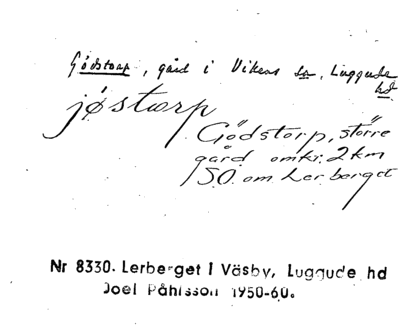 Gödstorp, gård i Vikens sn, Luggude
hd
jøstærp
Gödstorp, större
gård omkr. 2 km
SO. om Lerberget
Nr 8330. Lerberget i Väsby, Luggude hd
Joel Påhlsson 1950-60.